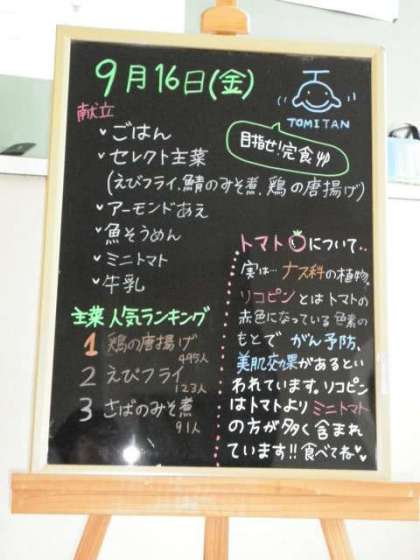 9月16日(金)
TOMITAN
目指せ!完食
献立
ごはん
セレクト主菜
(えびフライ.鯖のみそ煮.鶏の唐揚げ)
アーモンドあえ
魚そうめん
ミニトマト
牛乳
主菜 人気ランキング
1 鶏の唐揚げ
495人
2 えびフライ
123人
3 さばのみそ煮
91人
トマトについて..
実は…ナス科の植物。
リコピンとはトマトの
赤色になっている色素の
もとで がん予防、
美肌効果があるとい
われています。リコピン
はトマトより ミニトマト
の方が多く含まれ
ています!!食べてね♥